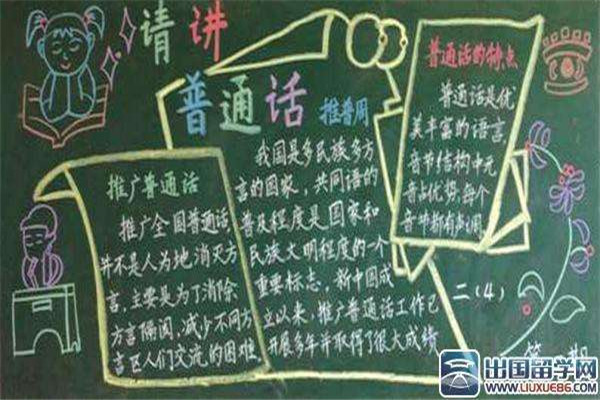 请讲
普通话
推普周
推广普通话
推广全国普通话,
并不是人为地消灭方
言,主要是为了消除
方言隔阂,减少不同方
言区人们交流的困难.
我国是多民族多方
言的国家,共同语的
普及程度是国家和
民族文明程度的一个
重要标志,新中国成
立以来,推广普通话工作已
开展多年并取得了很大成绩
普通话的特点
普通话是优
美丰富的语言,
音节结构中元
音占优势,每个
音节都有声调
二(4)
出国留学网
WWW.LIUXUE86.COM